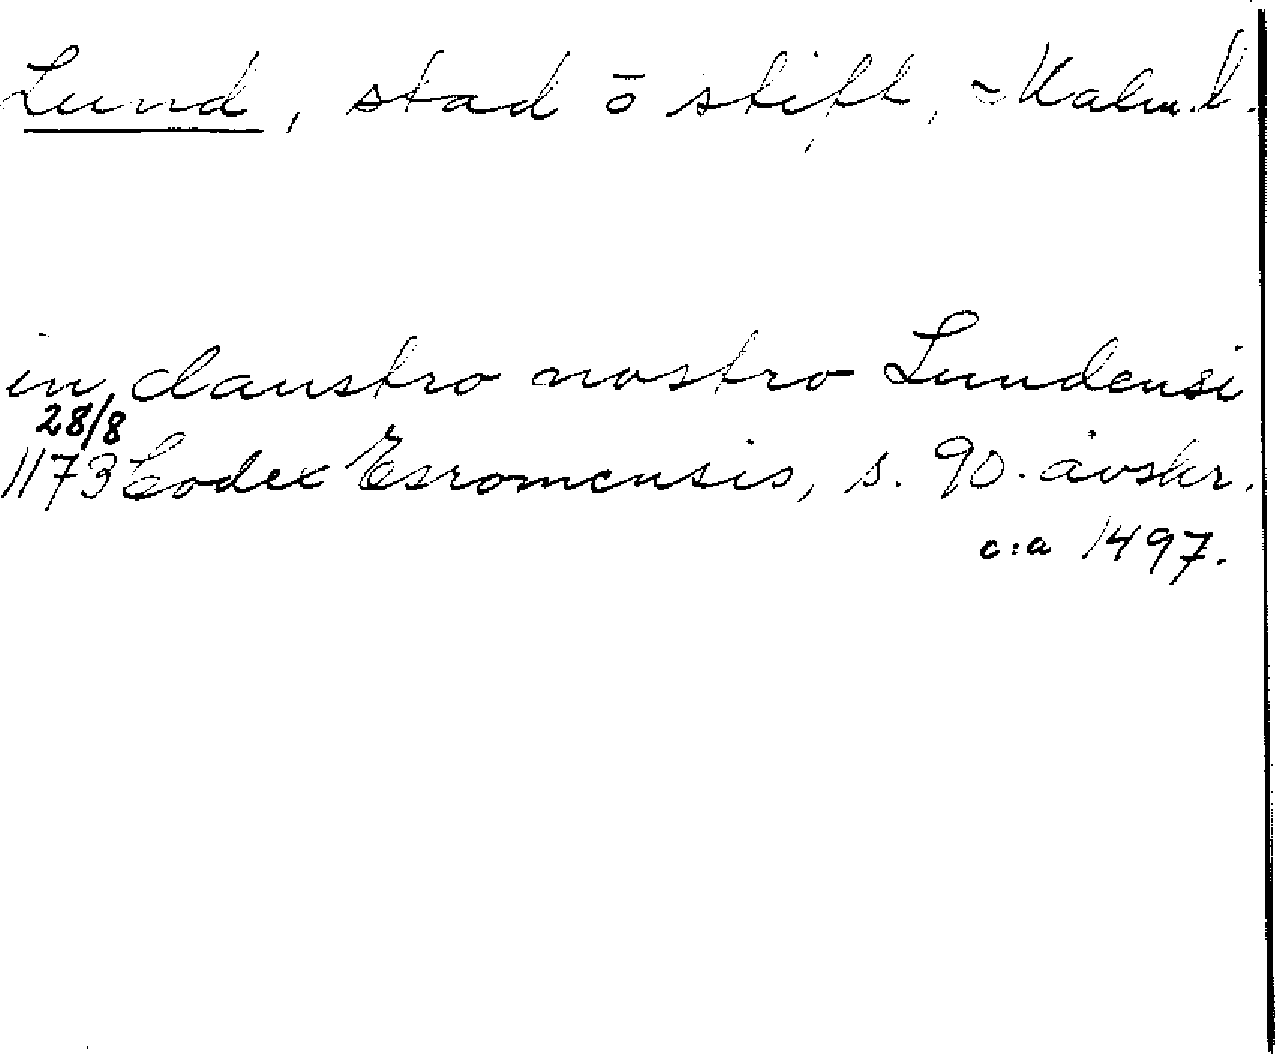 Lund, stad ō stift, Malm. l.
in claustro nostro Lundensi
28/8
1173 Codex Esromensis, s. 90. avskr.
c:a 1497.